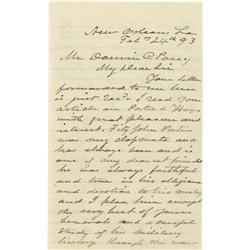 New Orleans La
Feby 24th 93
Mr
My Dear Sir
Your letter
forwarded to me here
is just rec'd. I read your
article on Porter &
with great pleasure and
interest. Fitz John Porter
was my classmate and
has always been and is
one of my dearest friends
he was always faithful
and true in his allegiance
and devotion to his country
and I place him amongst
the very best of
Generals and a careful
study of his military
history through the war